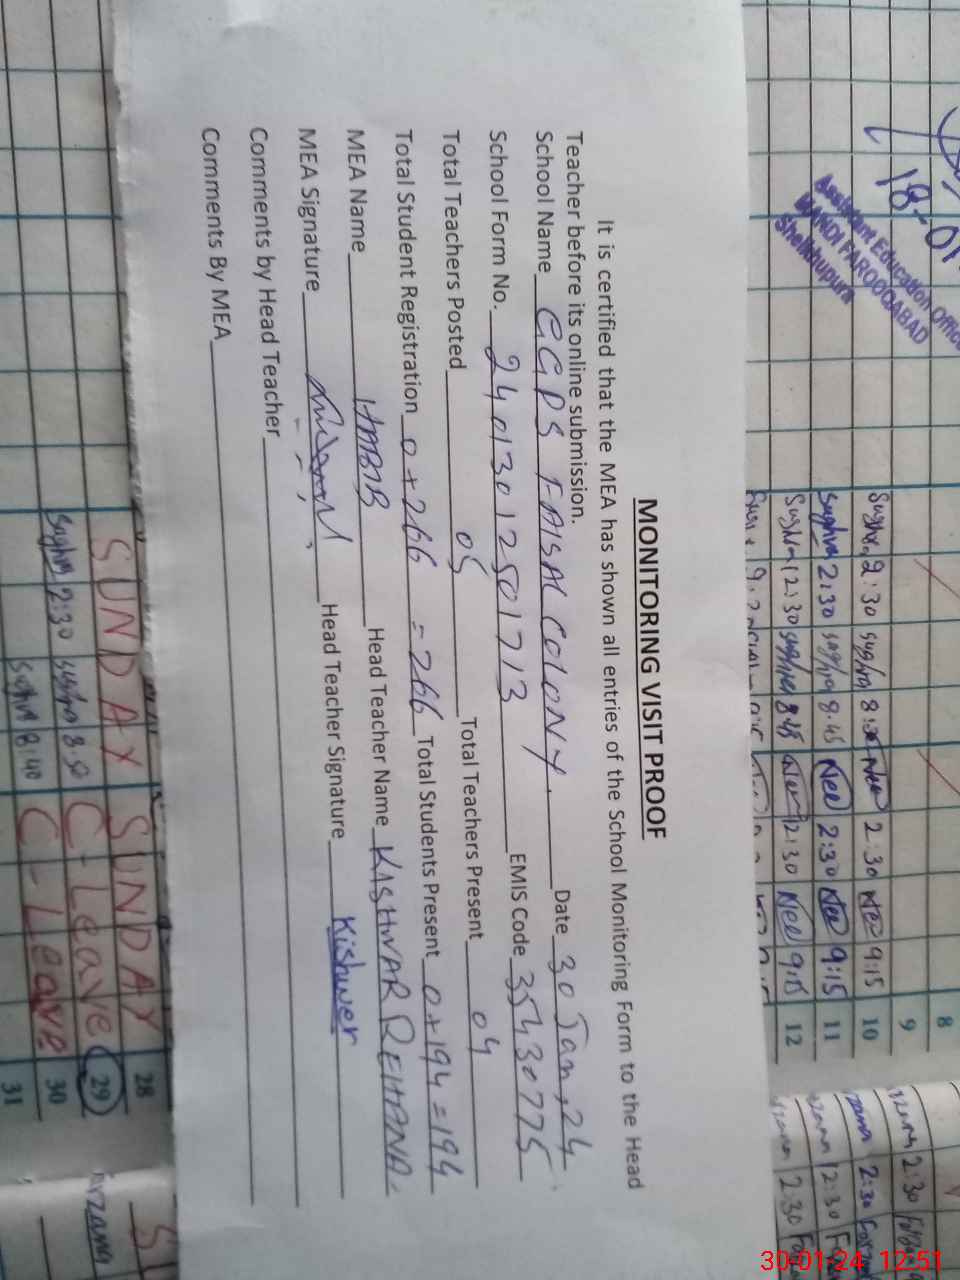 MONITORING VISIT PROOF
It is certified that the MEA has shown all entries of the School Monitoring Form to the Head
Teacher before its online submission.
School Name GGPS FAISAL COLONY. Date 30 Jan, 24
School Form No. 24013012501713 EMIS Code 35430775
Total Teachers Posted 05 Total Teachers Present 04
Total Student Registration 0+266 = 266 Total Students Present 0+194=194
MEA Name Head Teacher Name KISHWAR REHANA.
MEA Signature Head Teacher Signature Kishwer
Comments by Head Teacher
Comments By MEA
18-01
Assistant Education Office
MANDI FAROOQABAD
Sheikhupura
8
9
2:30 8:30 Nee 2:30 Nee 9:15 10
Sughra 2:30 sughra 8:45 Nee 2:30 Nee 9:15 11
12:30 sughra 8:45 Nee 12:30 Nee 9:15 12
SUNDAY SUNDAY 28
Sughra 2:30 sughra 8:50 C-Leave 29
8:40 C-Leave 30
31
2:30
2:30
12:30
2:30
30-01-24 12:51